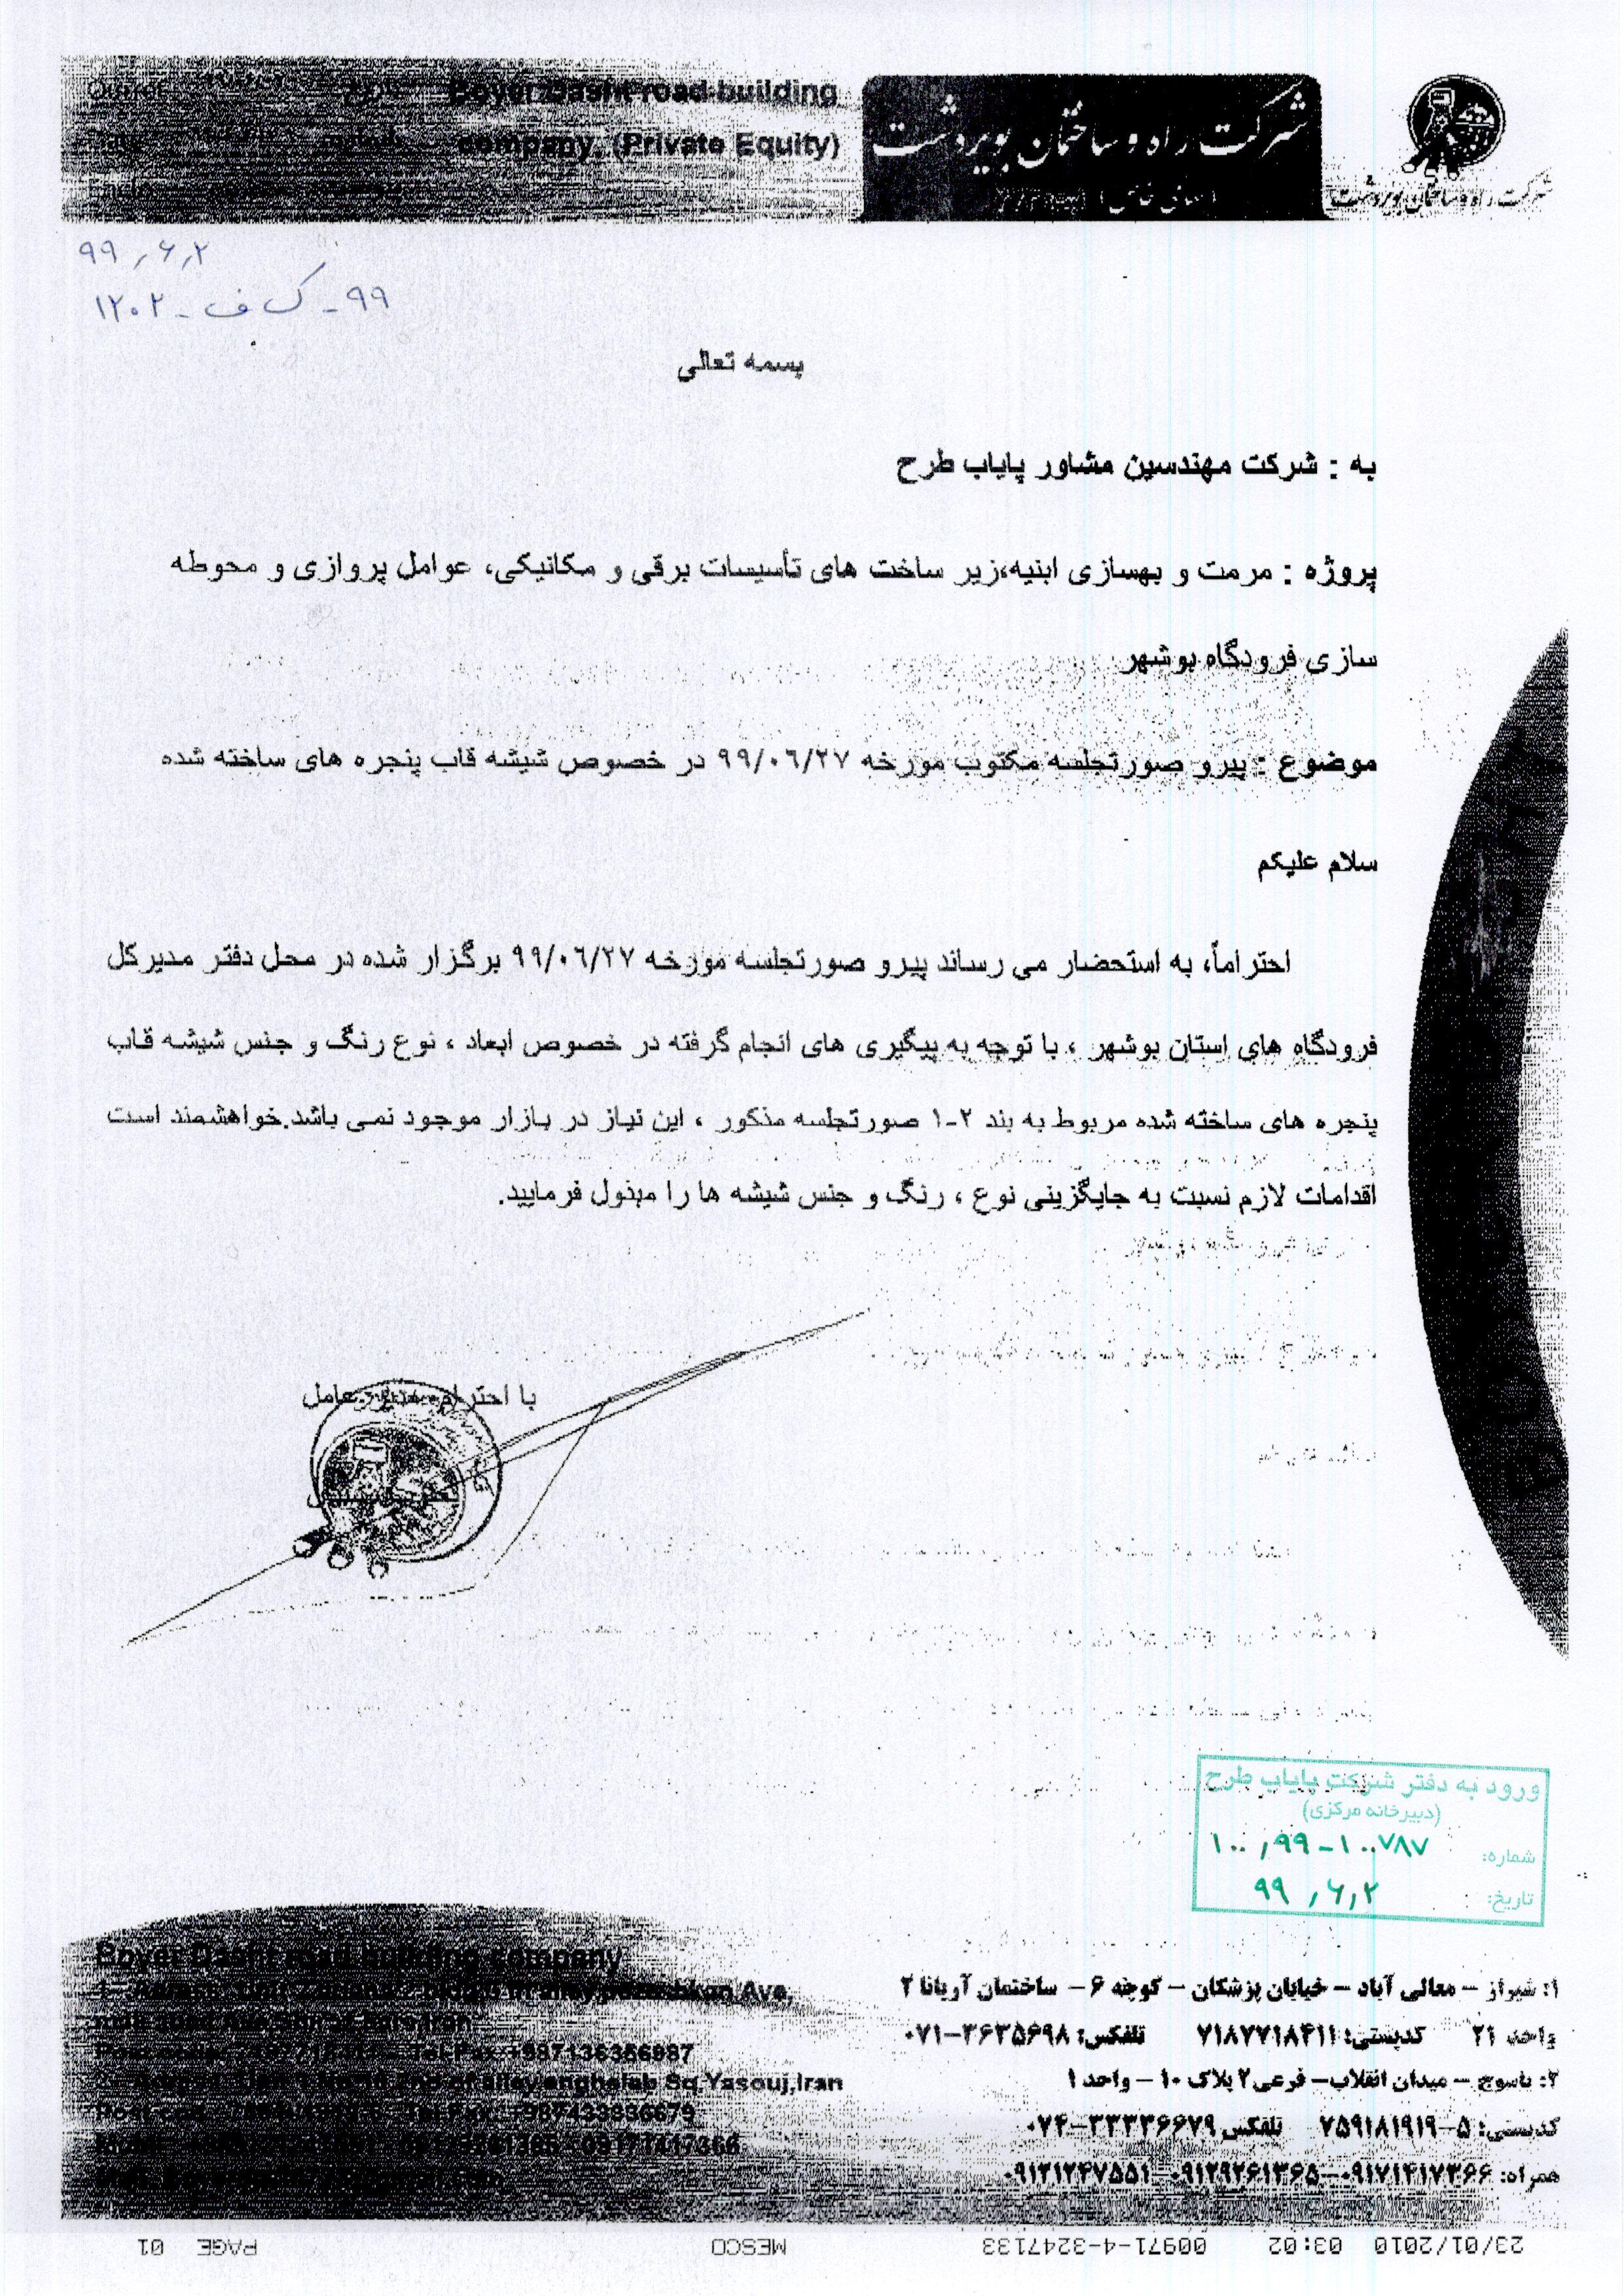 Boyer Dasht road building
company, (Private Equity)
شرکت راه و ساختمان بویردشت
(سهامی خاص)
شرکت راه و ساختمان بویردشت
۹۹٫۶٫۲
۹۹ـ ک ف ـ ۱۲۰۲
بسمه تعالی
به : شرکت مهندسین مشاور پایاب طرح
پروژه : مرمت و بهسازی ابنیه،زیر ساخت های تأسیسات برقی و مکانیکی، عوامل پروازی و محوطه
سازی فرودگاه بوشهر
موضوع : پیرو صورتجلسه مکتوب مورخه ۹۹/۰۶/۲۷ در خصوص شیشه قاب پنجره های ساخته شده
سلام علیکم
احتراماً، به استحضار می رساند پیرو صورتجلسه مورخه ۹۹/۰۶/۲۷ برگزار شده در محل دفتر مدیرکل
فرودگاه های استان بوشهر ، با توجه به پیگیری های انجام گرفته در خصوص ابعاد ، نوع رنگ و جنس شیشه قاب
پنجره های ساخته شده مربوط به بند ۲-۱ صورتجلسه مذکور ، این نیاز در بازار موجود نمی باشد.خواهشمند است
اقدامات لازم نسبت به جایگزینی نوع ، رنگ و جنس شیشه ها را مبذول فرمایید.
با احترام مدیر عامل
ورود به دفتر شرکت پایاب طرح
(دبیرخانه مرکزی)
شماره: ۱۰۰٫۹۹-۱۰۰۷۸۷
تاریخ: ۹۹٫۶٫۲
Boyer Dasht road building company
alley,pezeshkan,Ave,
Tel-Fax:+987136356987
alley,enghelab Sq,Yasouj,Iran
Tel-Fax: +987433336679
09171417366
۱: شیراز – معالی آباد – خیابان پزشکان – کوچه ۶ – ساختمان آریانا ۲
واحد ۲۱ کدپستی: ۷۱۸۷۷۱۸۴۱۱ تلفکس: ۳۶۳۵۶۹۸-۰۷۱
۲: یاسوج – میدان انقلاب– فرعی۲ پلاک ۱۰ – واحد ۱
کدپستی: ۵-۷۵۹۱۸۱۹۱۹ تلفکس ۳۳۳۳۶۶۷۹-۰۷۴
همراه: ۰۹۱۷۱۴۱۷۳۶۶-۰۹۱۲۹۲۶۱۳۶۵-۰۹۱۲۱۲۴۷۵۵۱
23/01/2010 03:02 00971-4-3247133 MESCO PAGE 01